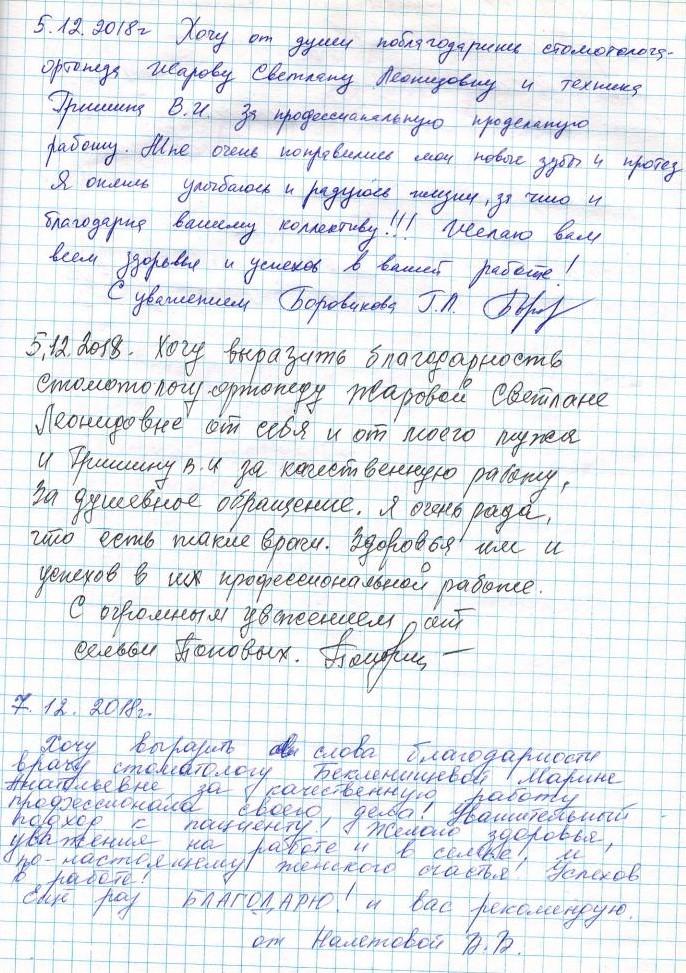 5.12.2018г Хочу от души поблагодарить стоматолога-
ортопеда Жарову Светлану Леонидовну и техника
Гришина В.И. За профессиональную проделаную
работу. Мне очень понравились мои новые зубы и протез
Я опять улыбаюсь и радуюсь жизни, за что и
благодарна вашему коллективу!!! Желаю вам
всем здоровья и успехов в вашей работе!
С уважением Боровикова Г.П.
5.12.2018. Хочу выразить благодарность
стоматологу-ортопеду Жаровой Светлане
Леонидовне от себя и от моего мужа
и Гришину В.И за качественную работу,
За душевное обращение. Я очень рада,
что есть такие врачи. Здоровья им и
успехов в их профессиональной работе.
С огромным уважением от
семьи Поповых.
7.12.2018г.
Хочу выразить слова благодарности
врачу стоматологу Бекленищевой Марине
Анатольевне за качественную работу
профессионала своего дела! Уважительный
подход к пациенту! Желаю здоровья,
уважения на работе и в семье, и
по-настоящему женского счастья! Успехов
в работе!
Ещё раз БЛАГОДАРЮ! и вас рекомендую.
от Налетовой В.В.